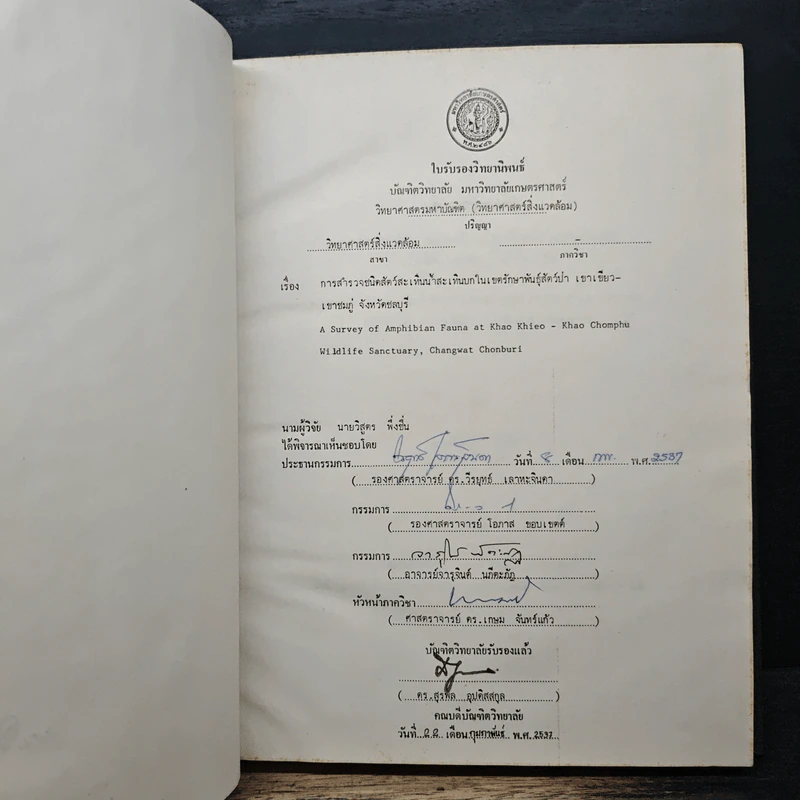 มหาวิทยาลัยเกษตรศาสตร์
พ.ศ.๒๔๘๖
ใบรับรองวิทยานิพนธ์
บัณฑิตวิทยาลัย มหาวิทยาลัยเกษตรศาสตร์
วิทยาศาสตรมหาบัณฑิต (วิทยาศาสตร์สิ่งแวดล้อม)
ปริญญา
วิทยาศาสตร์สิ่งแวดล้อม –
สาขา ภาควิชา
เรื่อง การสำรวจชนิดสัตว์สะเทินน้ำสะเทินบกในเขตรักษาพันธุ์สัตว์ป่า เขาเขียว-
เขาชมภู่ จังหวัดชลบุรี
A Survey of Amphibian Fauna at Khao Khieo - Khao Chomphu
Wildlife Sanctuary, Changwat Chonburi
นามผู้วิจัย นายวิสูตร พึ่งชื่น
ได้พิจารณาเห็นชอบโดย
ประธานกรรมการ วันที่ 8 เดือน กพ. พ.ศ.2537
( รองศาสตราจารย์ ดร.วีรยุทธ์ เลาหะจินดา )
กรรมการ
( รองศาสตราจารย์ โอภาส ขอบเขตต์ )
กรรมการ
( อาจารย์จารุจินต์ นภีตะภัฏ )
หัวหน้าภาควิชา
( ศาสตราจารย์ ดร.เกษม จันทร์แก้ว )
บัณฑิตวิทยาลัยรับรองแล้ว
( ดร.สุรพล อุปดิสสกุล )
คณบดีบัณฑิตวิทยาลัย
วันที่ 22 เดือน กุมภาพันธ์ พ.ศ. 2537